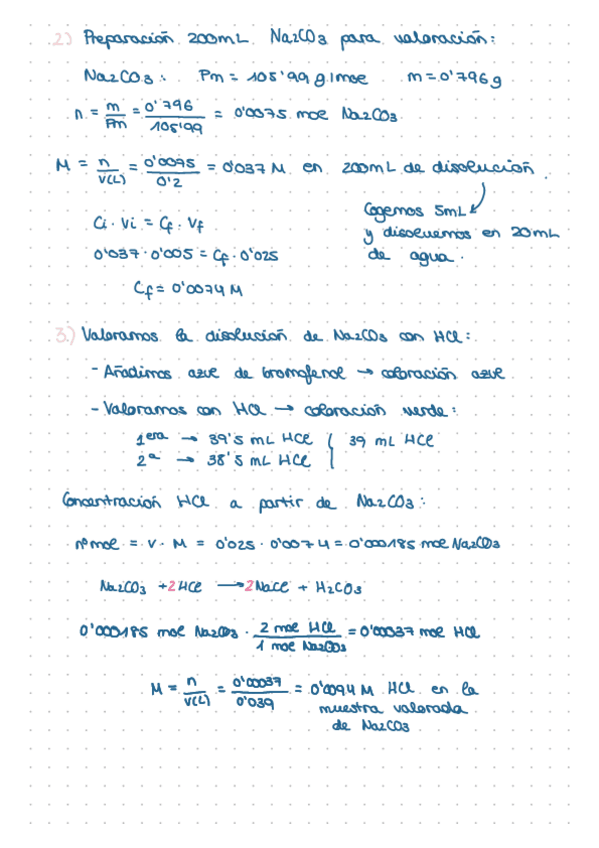 2) Preparación 200mL Na2CO3 para valoración:
Na2CO3: Pm = 105'99 g/mol m = 0'796 g
n = m/Pm = 0'796/105'99 = 0'0075 mol Na2CO3
M = n/V(L) = 0'0075/0'2 = 0'037 M en 200mL de disolución.
Cogemos 5mL
y disolvemos en 20mL
de agua.
Ci · Vi = Cf · Vf
0'037 · 0'005 = Cf · 0'025
Cf = 0'0074 M
3.) Valoramos la disolución de Na2CO3 con HCl:
- Añadimos azul de bromofenol → coloración azul
- Valoramos con HCl → coloración verde:
1era → 39'5 mL HCl
2a → 38'5 mL HCl
39 mL HCl
Concentración HCl a partir de Na2CO3:
nº mol = V · M = 0'025 · 0'0074 = 0'000185 mol Na2CO3
Na2CO3 + 2HCl → 2NaCl + H2CO3
0'000185 mol Na2CO3 · 2 mol HCl/1 mol Na2CO3 = 0'00037 mol HCl
M = n/V(L) = 0'00037/0'039 = 0'0094 M HCl en la
muestra valorada
de Na2CO3